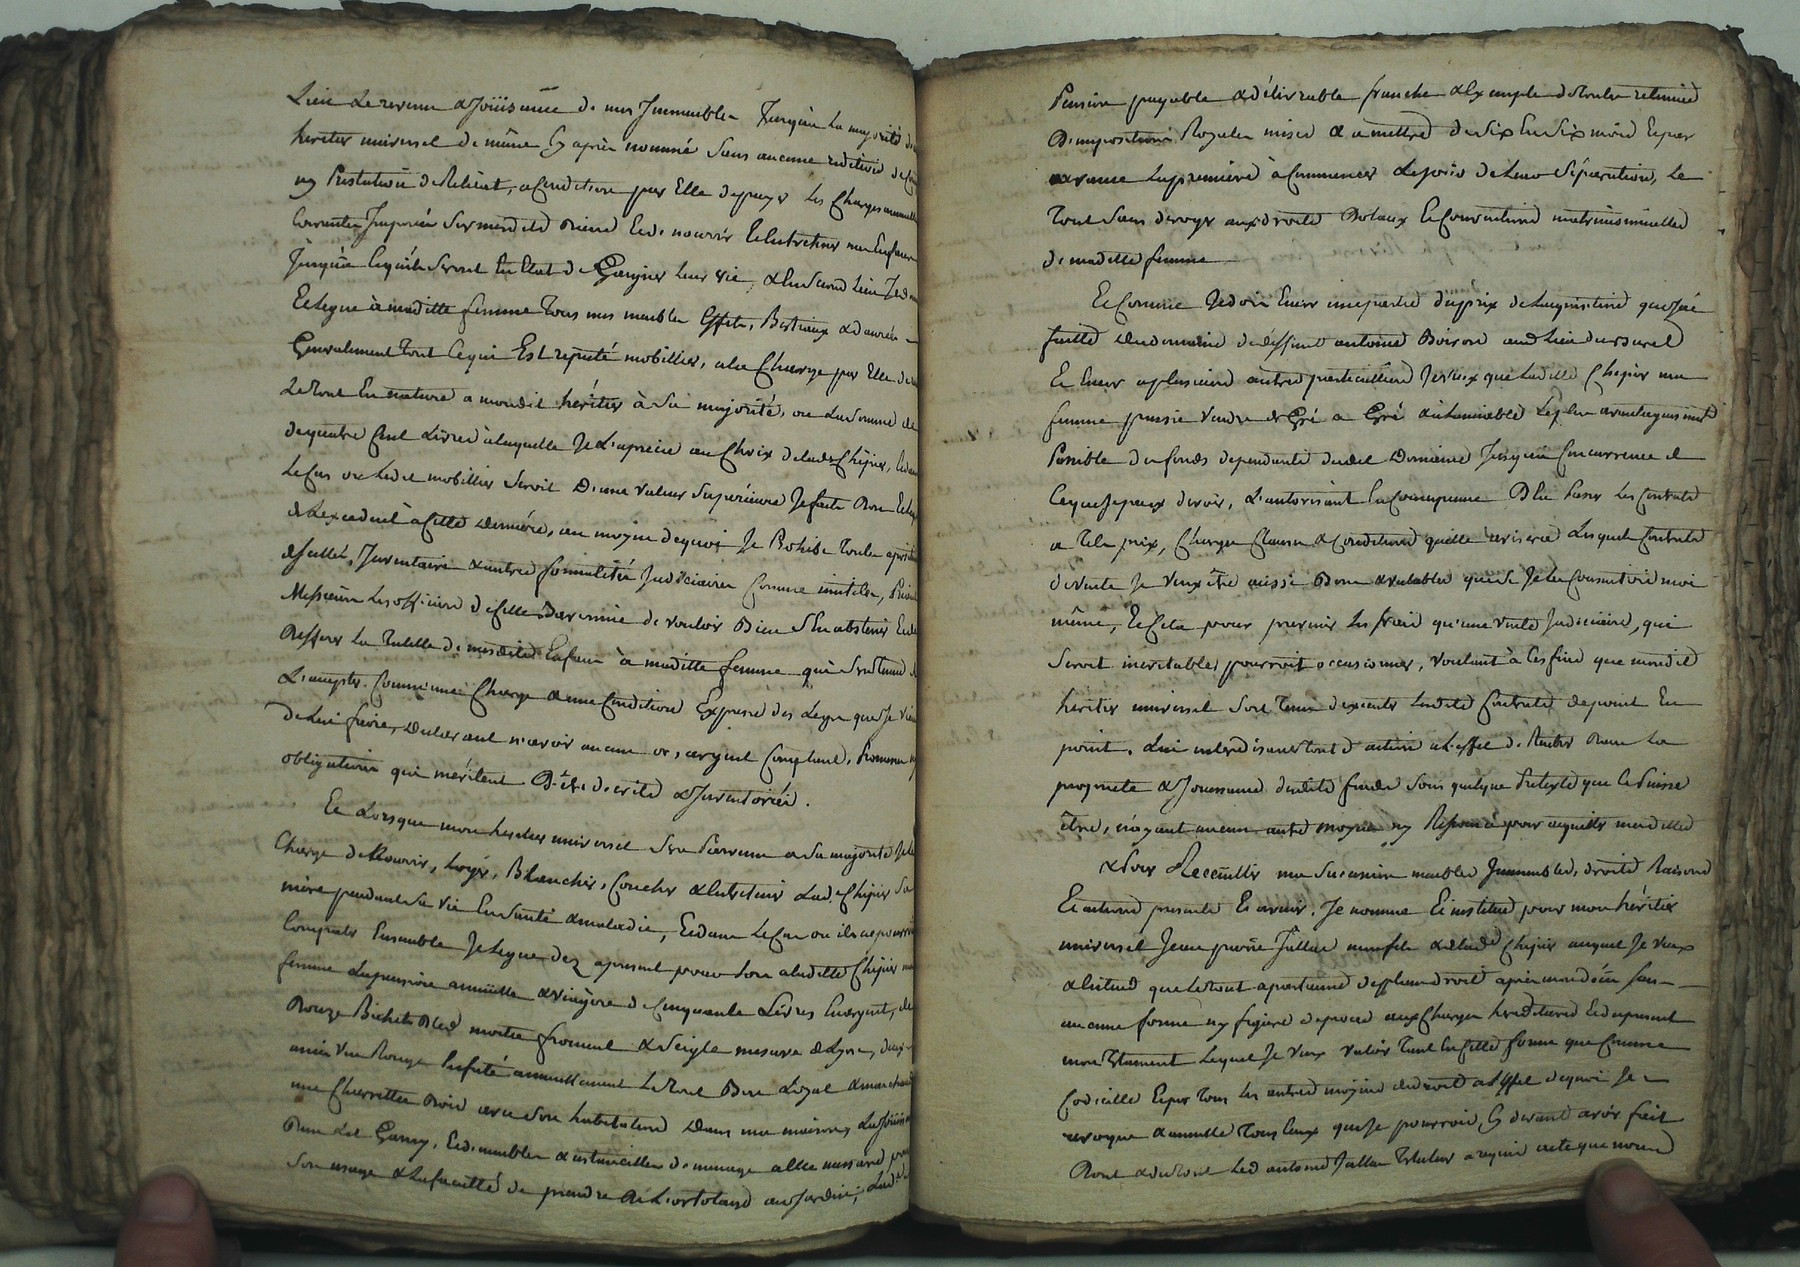 Lieu le revenu & Jouissance de mes Immeubles Jusqu'a la majorité de
heritier universel de même Cy après nommé Sans aucune reddition de
ny Prestation de Reliquat, a Condition par Elle de payer les Charges annuelles
Courantes Imposées Sur mesdits Biens Et de nourrir & Entretenir mes Enfans
Jusqu'a Ce qu'ils Seront En Etat de Gaigner leur vie, & En Second Lieu Je
Et Legue à maditte femme Tous mes meubles Effets, Bestiaux & denrées
Generalement Tout Ce qui Est reputé mobillier, a la Charge par Elle de
Le Tout En nature a mondit héritier à Sa majorité, ou La Somme de
de quatre Cent Livres à laquelle Je L'aprecie au Choix de lade Chipier,
Le Cas ou Ledit mobillier Seroit D'une valeur Superieure Je faits Don
de L'excedent à Cette Derniere, au moyen de quoy Je Prohibe Toute aposition
de Scellés, Inventaire & autres formalités Judiciaires Comme inutiles, Priant
Messieurs Les officiers de Celle de vouloir Bien S'En abstenir
Defferer La Tutelle de mesdits Enfans à maditte femme qui Sera Tenue de
L'accepter Comme une Charge & une Condition Expresse des Legs que Je viens
de Lui faire, Declarant n'avoir aucun or, argent Comptant, Promesses ny
obligations qui méritent D'être decrits & Inventoriés.
Et Lorsque mon heritier universel Sera Parvenu a Sa majorité Je le
Charge de Nourrir, Loger, Blanchir, Coucher & Entretenir Lad. Chipier Sa
mère pendant Sa vie En Santé & maladie, Et dans Le Cas ou ils ne pourroient
Compatir Ensemble Je Legue dez apresent pour Lors a laditte Chipier ma
femme La pension annuelle & viagere de Cinquante Livres En argent, de
Douze Bichets Bled moitié froment & Seigle mesure de Lyon,
anée Vin Rouge annuellement Le Tout Bon Loyal & marchand
une Charretée Bois avec Son habitation Dans ma maison,
Et de meubles & ustancilles de menage a Elle necessaires pour
Son usage & La faculté de prendre de L'ortolage au Jardin, Lad.
Pension payable & délivrable franche & Exempte de Toutes retenues
D'impositions Royales mises & a mettre de Six En Six mois Et par
avance La premiere à Commencer Le jour de Leur Séparation, Le
Tout Sans deroger aux droits Dotaux Et Conventions matrimonialles
de maditte femme
Et Comme Je dois Encor une partie du prix de L'acquisition que J'ai
faitte du domaine de deffunt antoine Boiron au Lieu
Et Encor a plusieurs autres particuliers Je veux que Laditte Chipier ma
femme puisse vendre de Gré a Gré à L'amiable Le plus avantageusement
Possible des fonds dependants dudit Domaine Jusqu'a Concurrence de
Ce que Je peux devoir, L'autorisant En Consequence D'En Passer Les Contrats
a Tels prix, Charges Clauses & Conditions qu'elle avisera Lesquels Contrats
de vente Je veux être aussi Bons & valables que Si Je Les Consentois moi
même, Et Cela pour prevenir Les frais qu'une vente Judiciaire, qui
Seroit inevitable, pourroit occasionner, voulant à Ces fins que mondit
héritier universel Soit Tenu d'executer Lesdits Contrats de point En
point, Lui interdisant toute action a L'effet de Rentrer Dans La
propriété & Jouissance desdits fonds Sous quelque Pretexte que Ce Puisse
être, n'ayant aucun autre moyen ny Ressource pour acquitter mesdittes
ma Succession meubles Immeubles, droits Raisons
Et actions presents Et avenir. Je nomme Et institue pour mon héritier
universel Jean pierre mon fils & de lade Chipier auquel Je veux
& Entend que Le tout apartienne de plein droit après mon déces Sans
aucune forme ny figure de procès aux Charges hereditaires Et du present
mon Testament Lequel Je veux valoir Tant En Cette forme que Comme
Codicille Et par Tous les autres moyens de droit a L'Effet de quoi Je
revoque & annulle Tous Ceux que Je pourrois Cy devant avoir fait
Dont & du Tout Led antoine Testateur a requis acte que nous